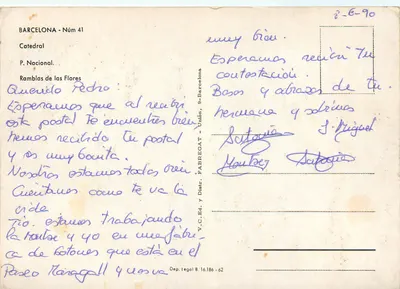 BARCELONA - Núm 41
Catedral
P. Nacional.
Ramblas de las Flores
Querido Pedro:
Esperamos que al recibir
esta postal te encuentres bien
hemos recibido tu postal
y es muy bonita.
Nosotros estamos todos bien.
Cuéntanos como te va la
vida
Tio. estamos trabajando
la Montse y yo en una fábri-
ca de botones que está en el
Paseo Maragall y nos va
Dep. Legal B. 16.186 - 62
V.C. Ed. y Distr. FABREGAT - Barcelona
8-6-90
muy bien.
Esperamos recibir tu
contestación.
Besos y abrazos de tu
hermana y sobrinos
J. Miguel
Montse